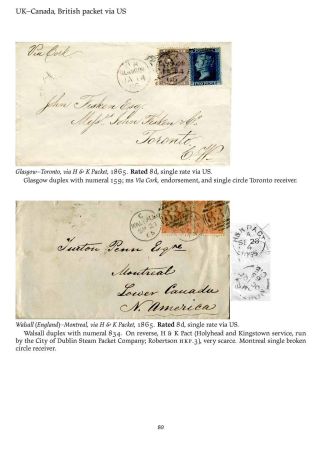 UK–Canada, British packet via US
Via Cork
John Fisken Esq.
Messrs. John Fisken & Co.
Toronto
C.W.
Glasgow–Toronto, via H & K Packet, 1865. Rated 8d, single rate via US.
Glasgow duplex with numeral 159; ms Via Cork, endorsement, and single circle Toronto receiver.
Turton Penn Esqre
Montreal
Lower Canada
N. America
Walsall (England)–Montreal, via H & K Packet, 1865. Rated 8d, single rate via US.
Walsall duplex with numeral 834. On reverse, H & K Pact (Holyhead and Kingstown service, run
by the City of Dublin Steam Packet Company; Robertson HKP.3), very scarce. Montreal single broken
circle receiver.
80